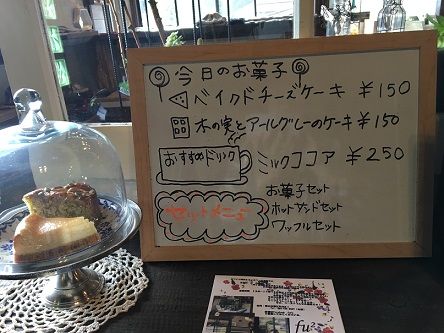 今日のお菓子
ベイクドチーズケーキ ¥150
木の実とアールグレーのケーキ ¥150
おすすめドリンク
ミルクココア ¥250
セットメニュー
お菓子セット
ホットサンドセット
ワッフルセット
fu